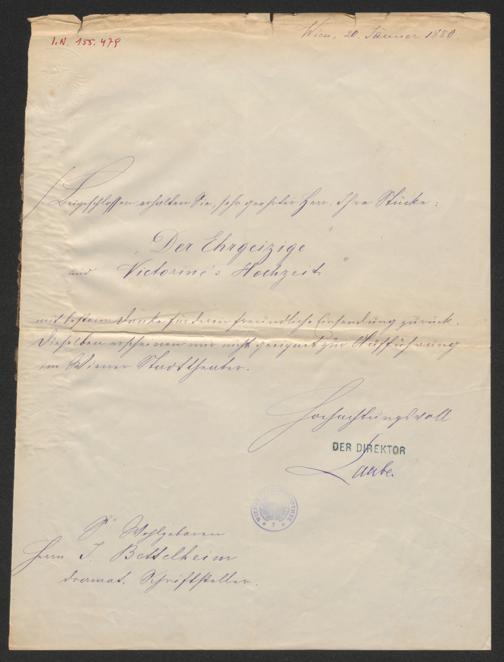 I.N. 155.479
Wien, 20. Jänner 1880.
Beigeschlossen erhalten Sie, sehr geehrter Herr, Ihre Stücke:
"Der Ehrgeizige"
und Victorine's Hochzeit"
mit bestem Danke für deren freundliche Einsendung zurück.
Dieselben erscheinen mir nicht geeignet zur Aufführung
im Wiener Stadttheater.
Hochachtungsvoll
DER DIREKTOR
Laube.
Sr Wohlgeboren
Herrn J. Bettelheim
dramat. Schriftsteller.